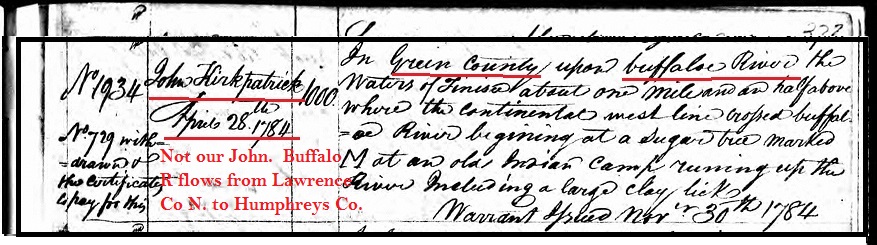 322
No 1934
No 729 with=
=drawn &
the Certificate
to pay for this
John Kirkpatrick
April 28th 1784
1000
In Green County upon buffaloe River the
Waters of Tinisee about one mile and an half above
where the continental west line crossed buffal-
=oe River begining at a Sugar tree marked
M at an old Indian Camp runing up the
River Including a large clay lick
Warrant Issued Novr 30th 1784
Not our John. Buffalo
R flows from Lawrence
Co N. to Humphreys Co.